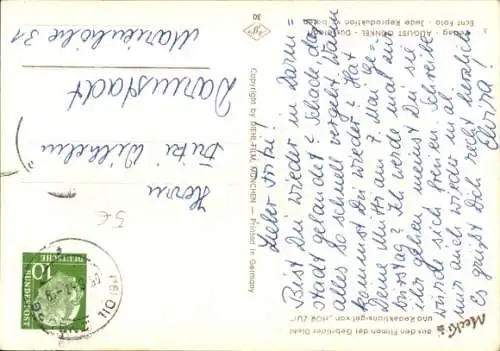 Lieber Fritzi!
Bist Du wieder in Darm=
stadt gelandet? Schade, daß
alles so schnell vergeht. Wann
kommst Du wieder? Hat
Deine Mutti am 7. Mai Ge=
burtstag? Ich werde mal zu
ihr gehen, meinst Du sie
würde sich freuen. Schreibe
mir auch wieder mal.
Es grüßt Dich recht herzlich
Elvira!
Mecki
aus den Filmen der Gebrüder Diehl
und Redaktionsigel von „HÖR ZU"
Copyright by DIEHL-FILM, MÜNCHEN — Printed in Germany
Verlag AUGUST GUNKEL · Düsseldorf
Echt Foto · Jede Reproduktion verboten
30
Herrn
Fritzi Wilhelm
Darmstadt
Marienhöhe 31
5€
10
DEUTSCHE
BUNDESPOST